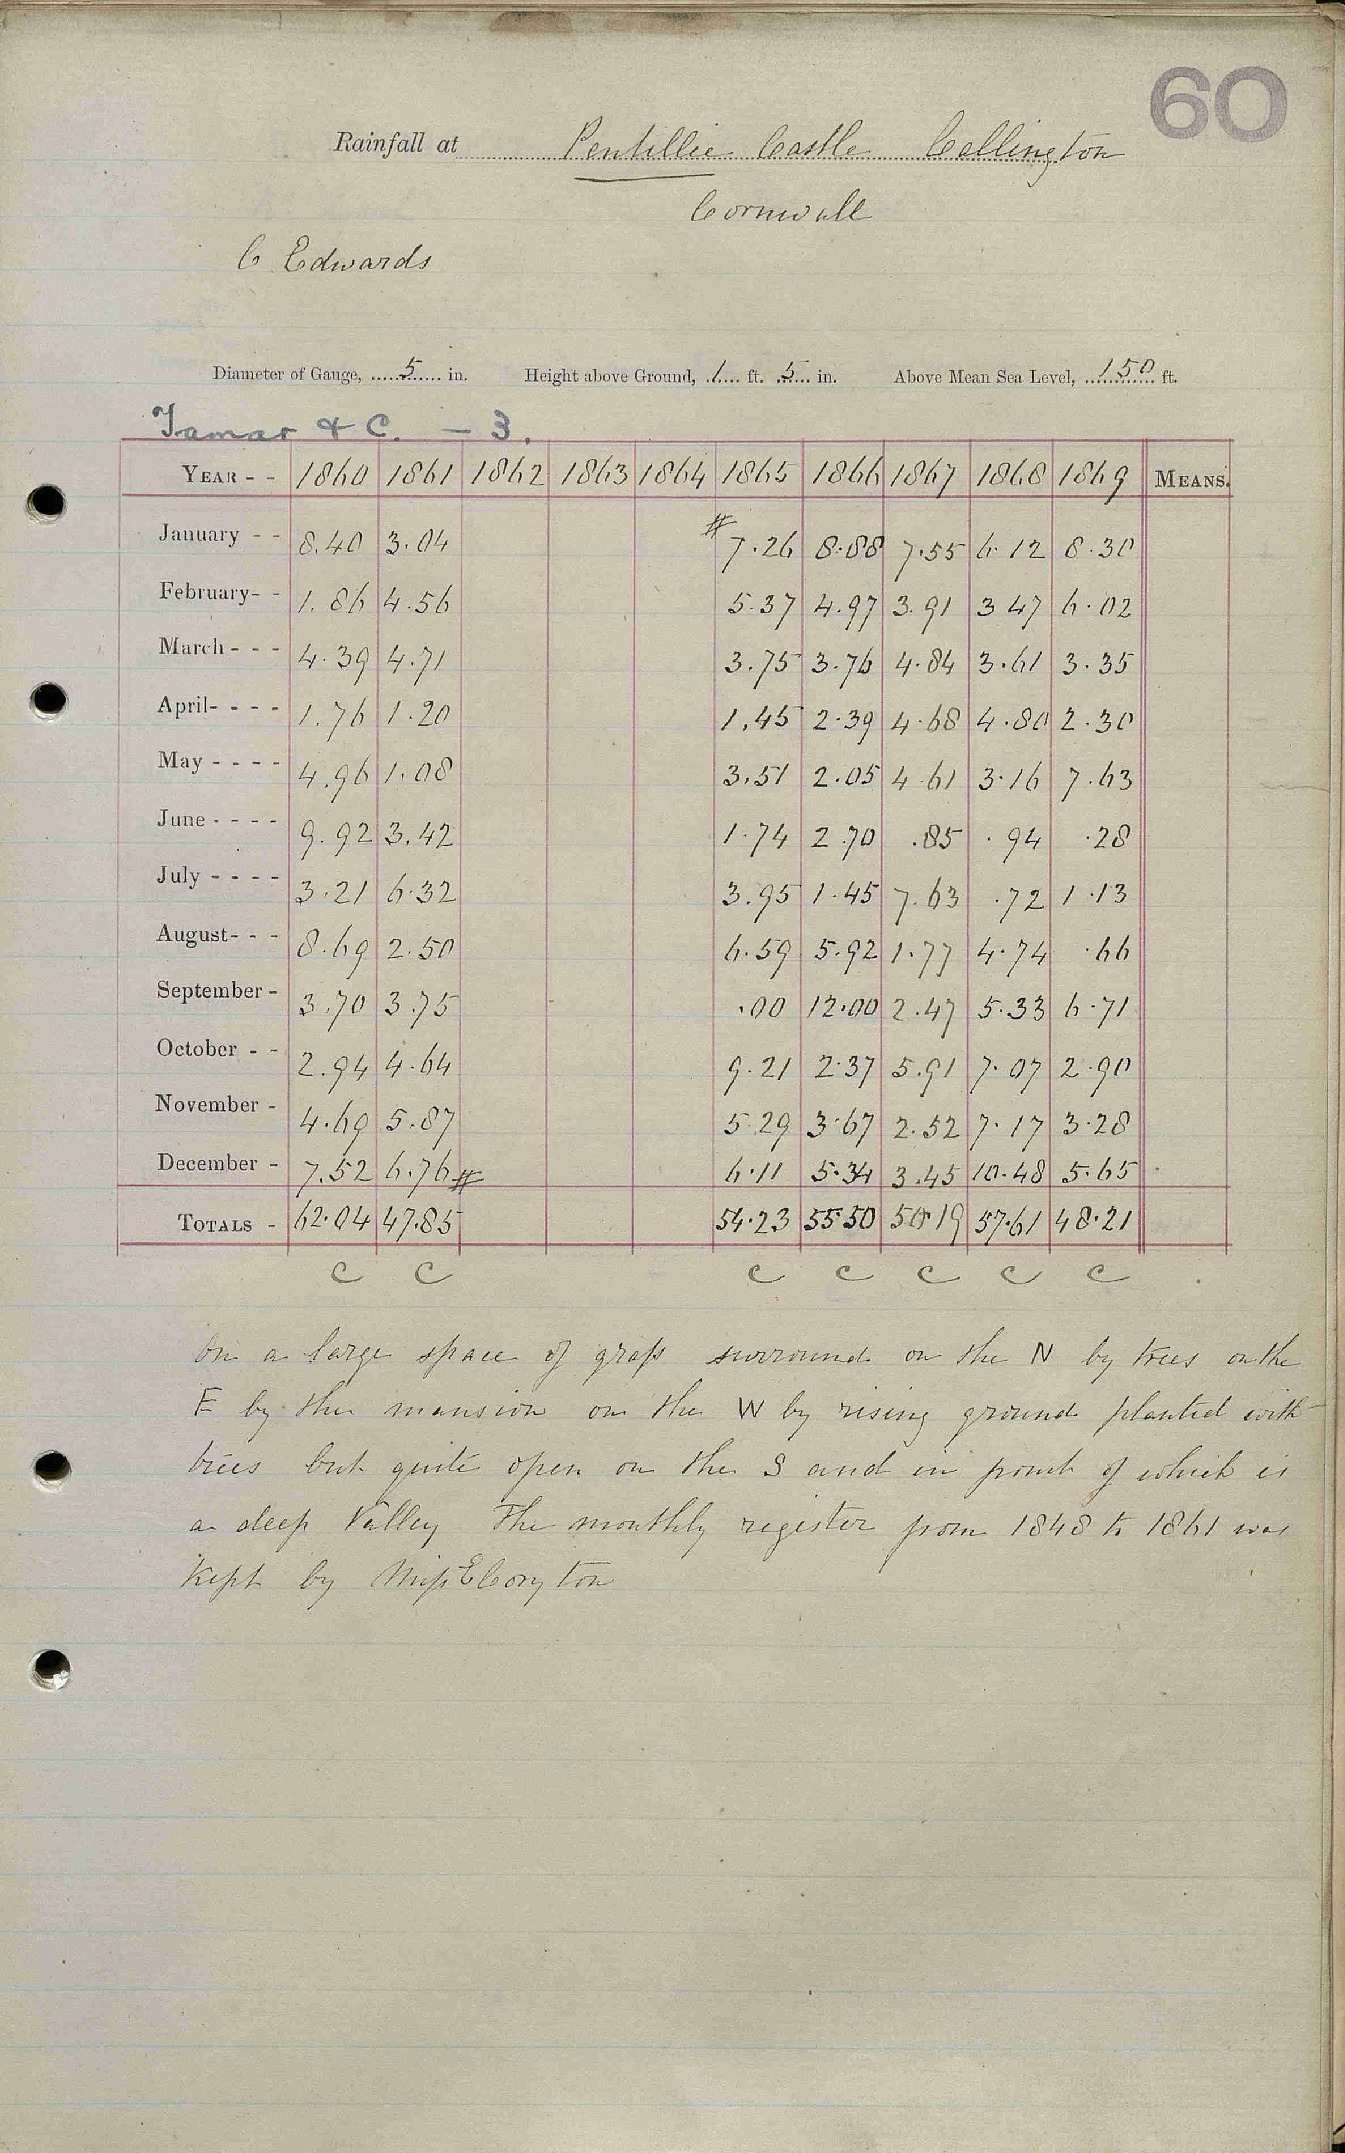 60
Rainfall at Pentillie Castle Callington
Cornwall
C Edwards
Diameter of Gauge, 5 in. Height above Ground, 1 ft. 5 in. Above Mean Sea Level, 150 ft.
Tamar & C. — 3.
YEAR - - 1860 1861 1862 1863 1864 1865 1866 1867 1868 1869 MEANS.
January - - 8.40 3.04 # 7.26 8.88 7.55 6.12 8.30
February- - 1.86 4.56 5.37 4.97 3.91 3 47 6.02
March - - - 4.39 4.71 3.75 3.76 4.84 3.61 3.35
April- - - - 1.76 1.20 1.45 2.39 4.68 4.80 2.30
May - - - - 4.96 1.08 3.51 2.05 4.61 3.16 7.63
June - - - - 9.92 3.42 1.74 2.70 .85 .94 .28
July - - - - 3.21 6.32 3.95 1.45 7.63 .72 1.13
August- - - 8.69 2.50 6.59 5.92 1.77 4.74 .66
September - 3.70 3.75 .00 12.00 2.47 5.33 6.71
October - - 2.94 4.64 9.21 2.37 5.91 7.07 2.90
November - 4.69 5.87 5.29 3.67 2.52 7.17 3.28
December - 7.52 6.76 # 6.11 5.34 3.45 10.48 5.65
TOTALS - 62.04 47.85 54.23 55.50 50.19 57.61 48.21
C C C C C C C
On a large space of grass surround on the N by trees on the
E by the mansion on the W by rising ground planted with
trees but quite open on the S and in front of which is
a deep Valley The monthly register from 1848 to 1861 was
kept by Miss E Coryton